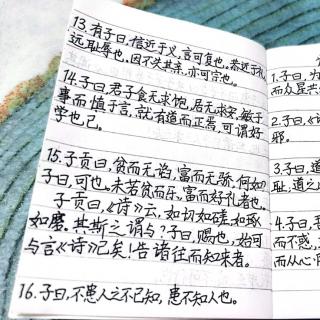 13.有子曰,信近于义,言可复也。恭近于礼,
远耻辱也。因不失其亲,亦可宗也。
14.子曰,君子食无求饱,居无求安,敏于
事而慎于言,就有道而正焉,可谓好
学也已。
15.子贡曰,贫而无谄,富而无骄,何如?
子曰,可也。未若贫而乐,富而好礼者也。
子贡曰,《诗》云,如切如磋,如琢
如磨。其斯之谓与?子曰,赐也,始可
与言《诗》已矣!告诸往而知来者。
16.子曰,不患人之不己知,患不知人也。
1.子曰,为
而众星共
2.子曰,《诗
邪。
3.子曰,道
耻,道之
4.子曰,吾
而不惑,
而从心所